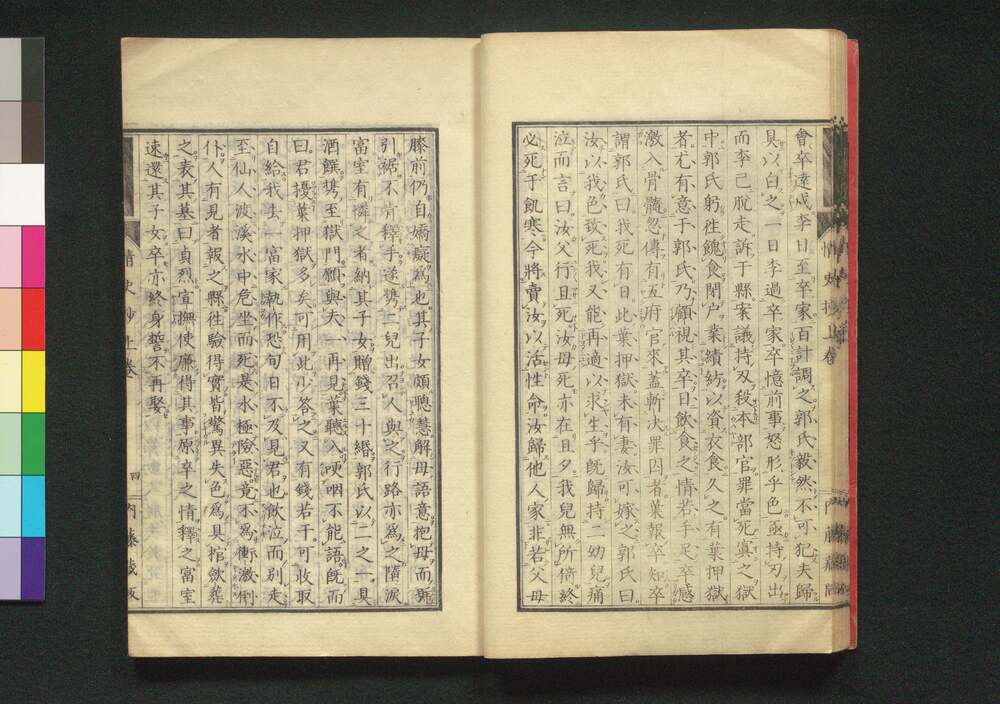 會卒遠戍李日至卒家百計調之郭氏毅然不可犯夫歸
具以白之一日李過卒家卒憶前事怒形乎色亟持刃出
而李已脫走訴于縣案議持刃殺本部官罪當死寘之獄
中郭氏躬往餽食閉户業績紡以資衣食久之有葉押獄
者尤有意于郭氏乃顧視其卒日飲食之情若手足卒感
激入骨髓忽傳有五府官來蓋斬決罪囚者葉報卒知卒
謂郭氏曰我死有日此葉押獄未有妻汝可嫁之郭氏曰
汝以我色致死我又能再適以求生乎既歸持二幼兒痛
泣而言曰汝父行且死汝母死亦在旦夕我兒無所倚終
必死于飢寒今將賣汝以活性命汝歸他人家非若父母
膝前仍自嬌癡爲也其子女頗聰慧解母語意抱母而號
引裾不肯釋手遂攜二兒出召人與之行路亦爲之隋淚
富室有憐之者納其子女贈錢三十緡郭氏以二之一具
酒饌携至獄門願與夫一再見葉聽入哽咽不能語既而
曰君擾葉押獄多矣可用此少答之又有錢若干可收取
自給我去一富家執作恐旬日不及見君也飲泣而别走
至仙人波溪水中危坐而死葢水極險惡竟不爲衝激倒
仆人有見者報之縣往驗得實皆驚異失色爲具棺歛葬
之表其墓曰貞烈宣撫使廉得其事原卒之情釋之富室
速還其子女卒亦終身誓不再娶
情史抄上卷
四
内藤